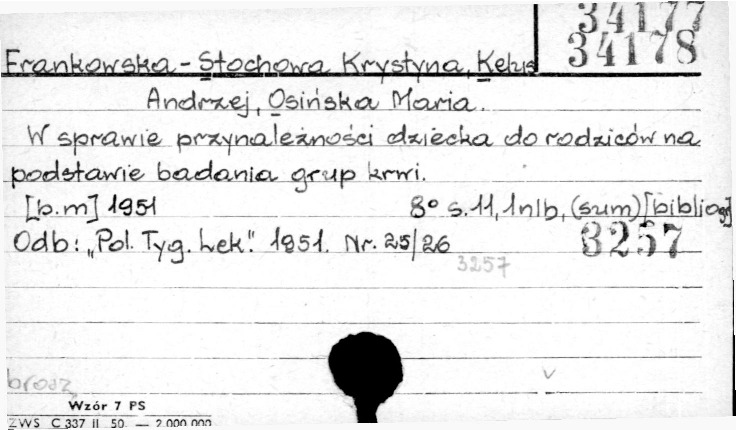 34177
34178
Frankowska-Stochowa Krystyna, Kelus
Andrzej, Osińska Maria.
W sprawie przynależności dziecka do rodziców na
podstawie badania grup krwi.
[b.m] 1951 8° s.11, 1nlb, (sum) [bibliogr]
Odb: „Pol. Tyg. Lek". 1951. Nr. 25/26 3257
3257
brosz.
Wzór 7 PS
ZWS C 337 II 50. — 2.000.000